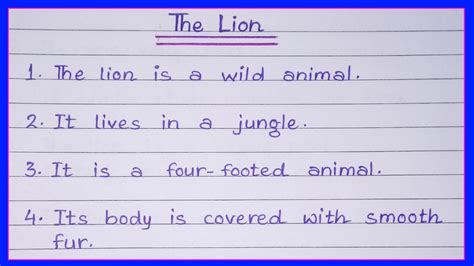 The Lion
1. The lion is a wild animal.
2. It lives in a jungle.
3. It is a four-footed animal.
4. Its body is covered with smooth
fur.